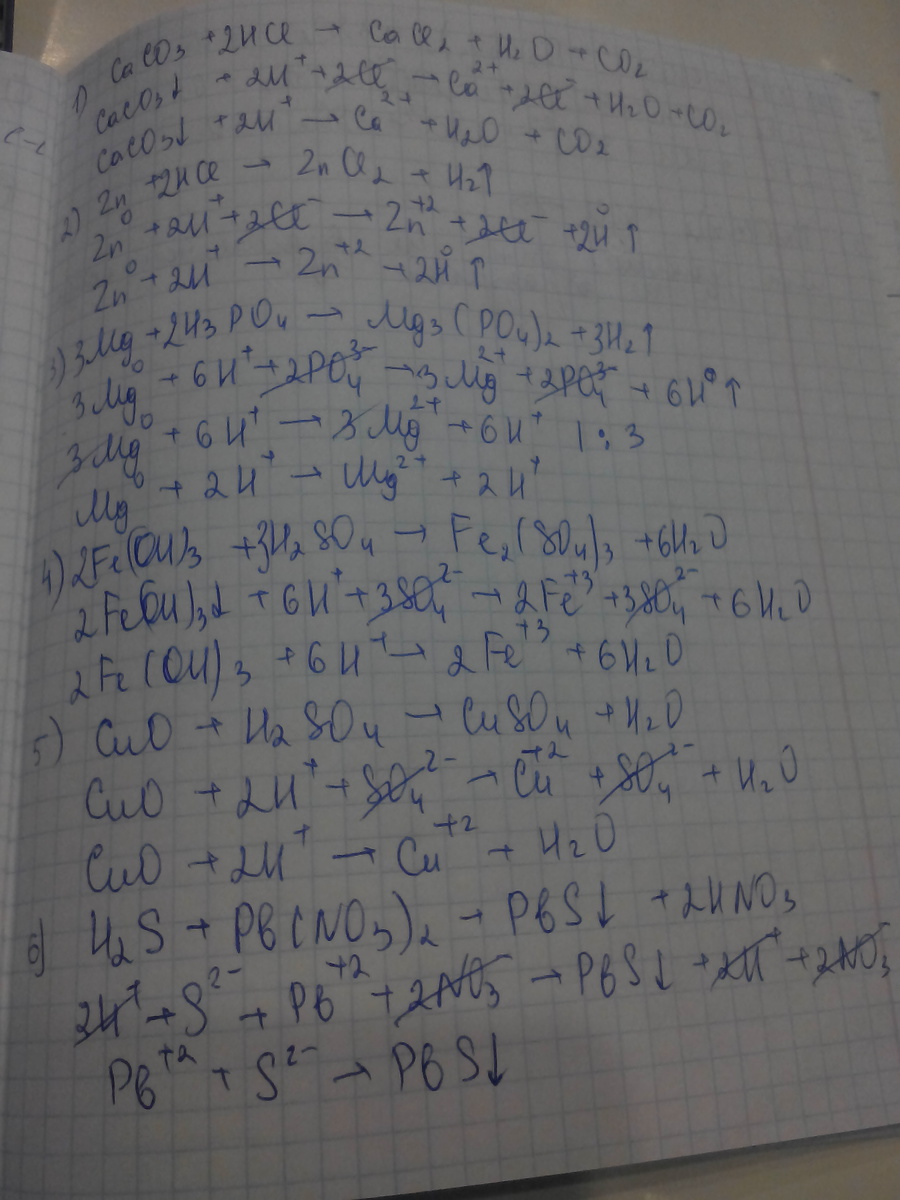 1) CaCO₃ + 2HCl → CaCl₂ + H₂O + CO₂
CaCO₃↓ + 2H⁺ + 2Cl⁻ → Ca²⁺ + 2Cl⁻ + H₂O + CO₂
CaCO₃↓ + 2H⁺ → Ca²⁺ + H₂O + CO₂
2) Zn + 2HCl → ZnCl₂ + H₂↑
Zn⁰ + 2H⁺ + 2Cl⁻ → Zn⁺² + 2Cl⁻ + 2H⁰↑
Zn⁰ + 2H⁺ → Zn⁺² + 2H⁰↑
3) 3Mg + 2H₃PO₄ → Mg₃(PO₄)₂ + 3H₂↑
3Mg⁰ + 6H⁺ + 2PO₄³⁻ → 3Mg²⁺ + 2PO₄³⁻ + 6H⁰↑
3Mg⁰ + 6H⁺ → 3Mg²⁺ + 6H⁺ | : 3
Mg⁰ + 2H⁺ → Mg²⁺ + 2H⁺
4) 2Fe(OH)₃ + 3H₂SO₄ → Fe₂(SO₄)₃ + 6H₂O
2Fe(OH)₃↓ + 6H⁺ + 3SO₄²⁻ → 2Fe⁺³ + 3SO₄²⁻ + 6H₂O
2Fe(OH)₃ + 6H⁺ → 2Fe⁺³ + 6H₂O
5) CuO + H₂SO₄ → CuSO₄ + H₂O
CuO + 2H⁺ + SO₄²⁻ → Cu⁺² + SO₄²⁻ + H₂O
CuO + 2H⁺ → Cu⁺² + H₂O
6) H₂S + Pb(NO₃)₂ → PbS↓ + 2HNO₃
2H⁺ + S²⁻ + Pb⁺² + 2NO₃⁻ → PbS↓ + 2H⁺ + 2NO₃⁻
Pb⁺² + S²⁻ → PbS↓